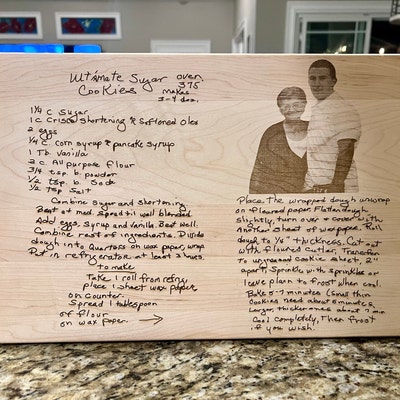 Ultimate Sugar Cookies
oven 375
makes 3-4 doz.
1 1/4 c sugar
1 c Crisco shortening & Softened oleo
2 eggs
1/4 c. corn syrup & pancake syrup
1 Tb. Vanilla
3 c. All purpose flour
3/4 tsp b. powder
1/2 tsp. b. Soda
1/2 tsp salt
Combine Sugar and Shortening
Beat at med. Speed til well blended
Add eggs, Syrup and Vanilla. Beat well.
Combine rest of ingredients. Divide
dough into Quarters on wax paper, wrap
Put in refrigerator at least 2 hours.
to make
Take 1 roll from refrig
place 1 sheet wax paper
on counter.
Spread 1 tablespoon
of flour
on wax paper. →
Place the wrapped dough unwrap
on floured paper. Flatten dough
slightly, turn over & cover with
Another sheet of wax paper. Roll
dough to 1/4" thickness. Cut out
with floured Cutter. Transfer
To ungreased cookie sheet, 2"
apart, Sprinkle with sprinkles or
leave plain to frost when cool.
Bake 5-9 minutes (small thin
Cookies need about 5 minutes
Larger, thicker ones about 9 min
Cool completely, Then frost
if you wish.